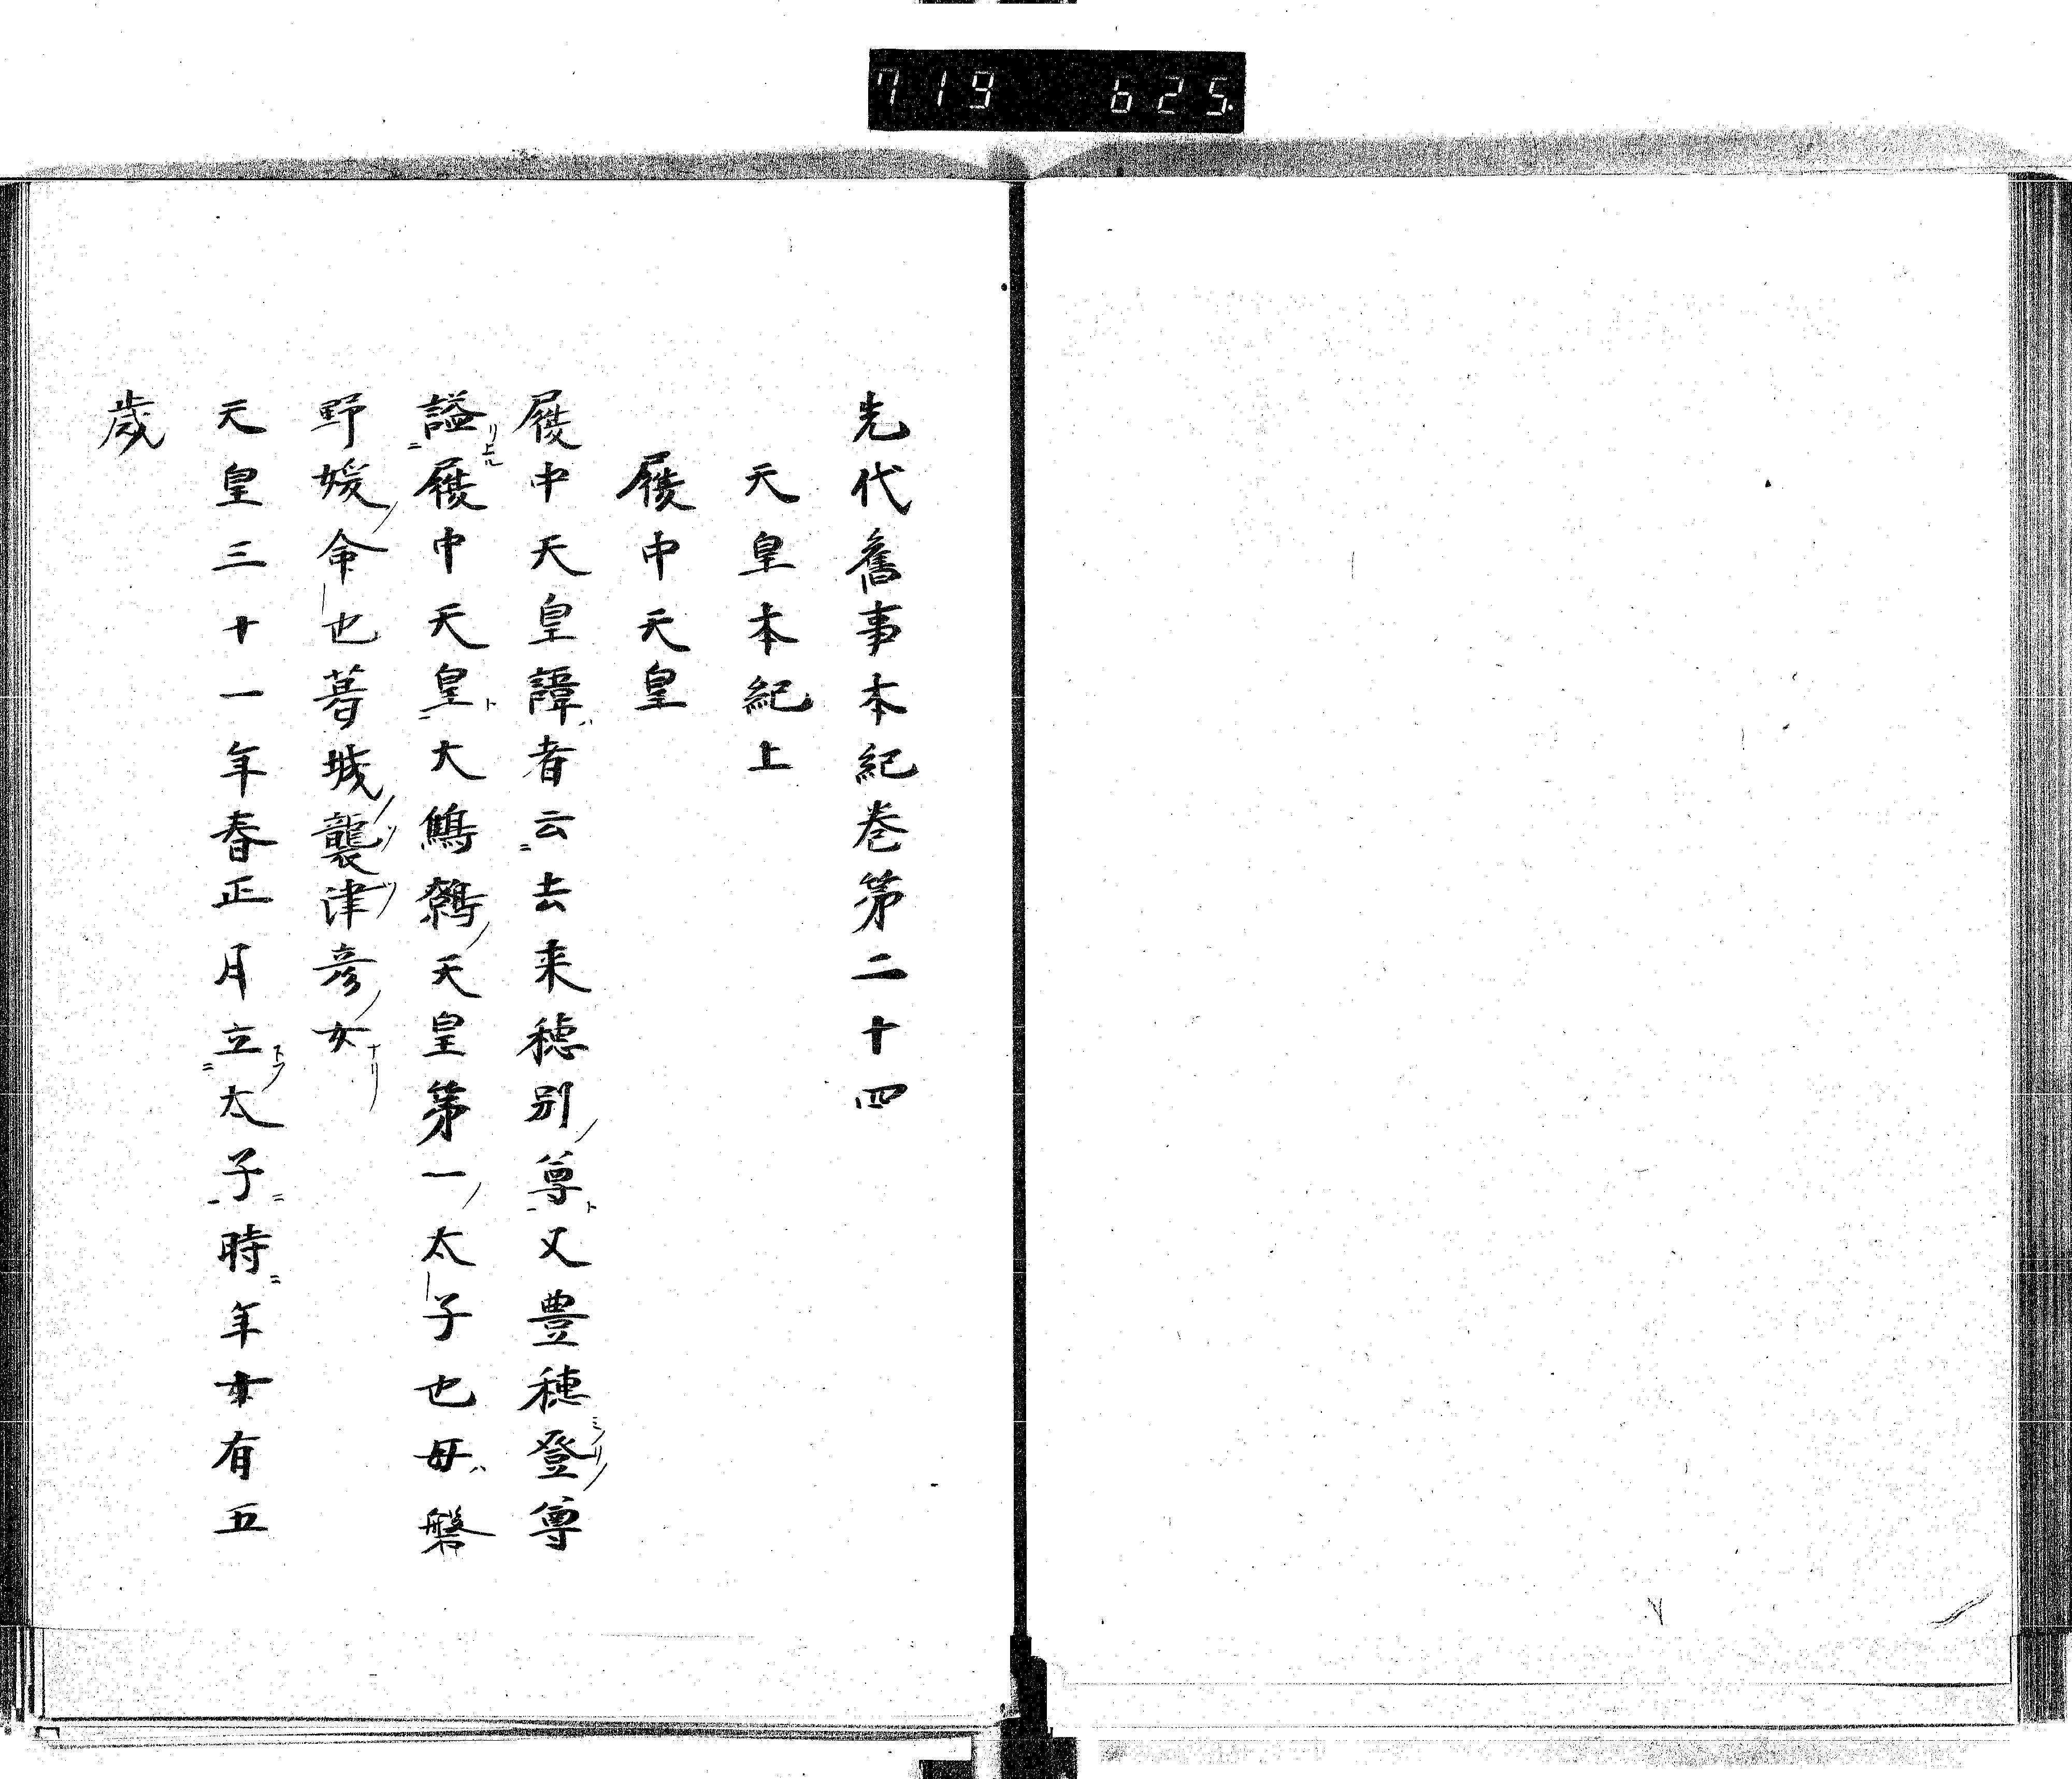 719 625.
先代舊事本紀巻第二十四
天皇本紀上
履中天皇
履中天皇諱者云去来穂別尊又豊穂登尊
謚履中天皇大鷦鷯天皇第一太子也母磐
野媛命也葛城襲津彦女
天皇三十一年春正月立太子時年十有五
歲